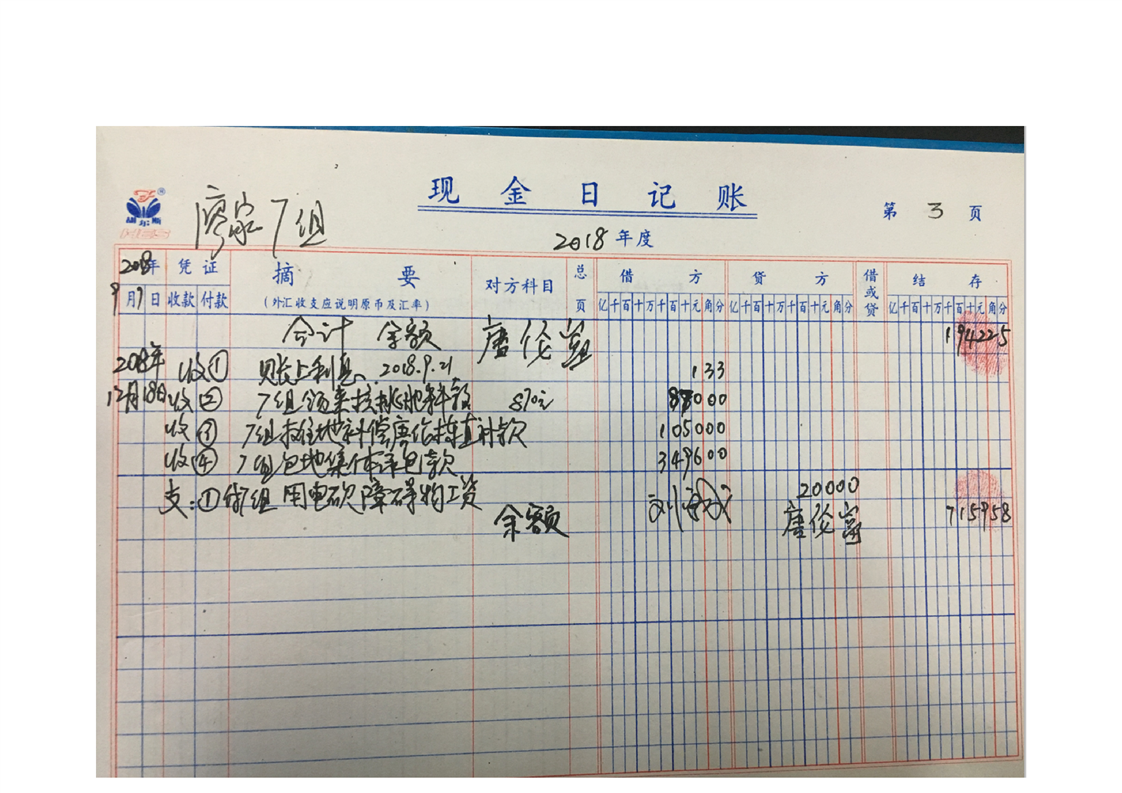 现金日记账
廖家7组
第 3 页
2018 年度
2018年 凭证 摘要 对方科目 总页 借方 贷方 借或贷 结存
9月9日 收款 付款 (外汇收支应说明原币及汇率) 亿千百十万千百十元角分 亿千百十万千百十元角分 亿千百十万千百十元角分
合计 余额 唐伦富 194225
2018年 收① 账上利息 2018.9.21 133
12月18日 收② 7组 870元 87000
收③ 7组 105000
收④ 7组包地集体承包款 349600
支:①付7组用电砍障碍物工资 20000
余额 唐伦富 715958